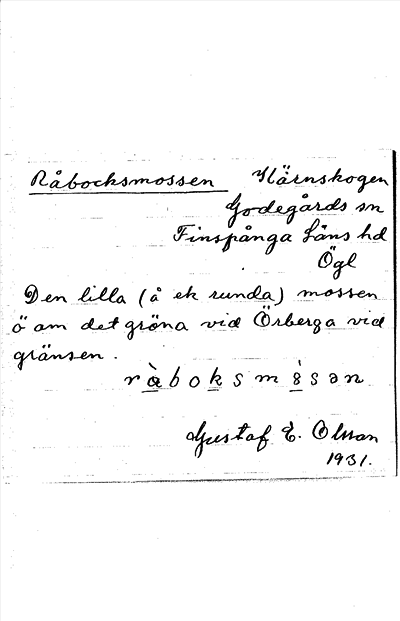 Råbocksmossen Kärnskogen
Godegårds sn
Finspånga läns hd
Ögl
Den lilla (å ek runda) mossen
ö om det gröna vid Örberga vid
gränsen.
ràboksmòsən
Gustaf E. Olsson
1931.